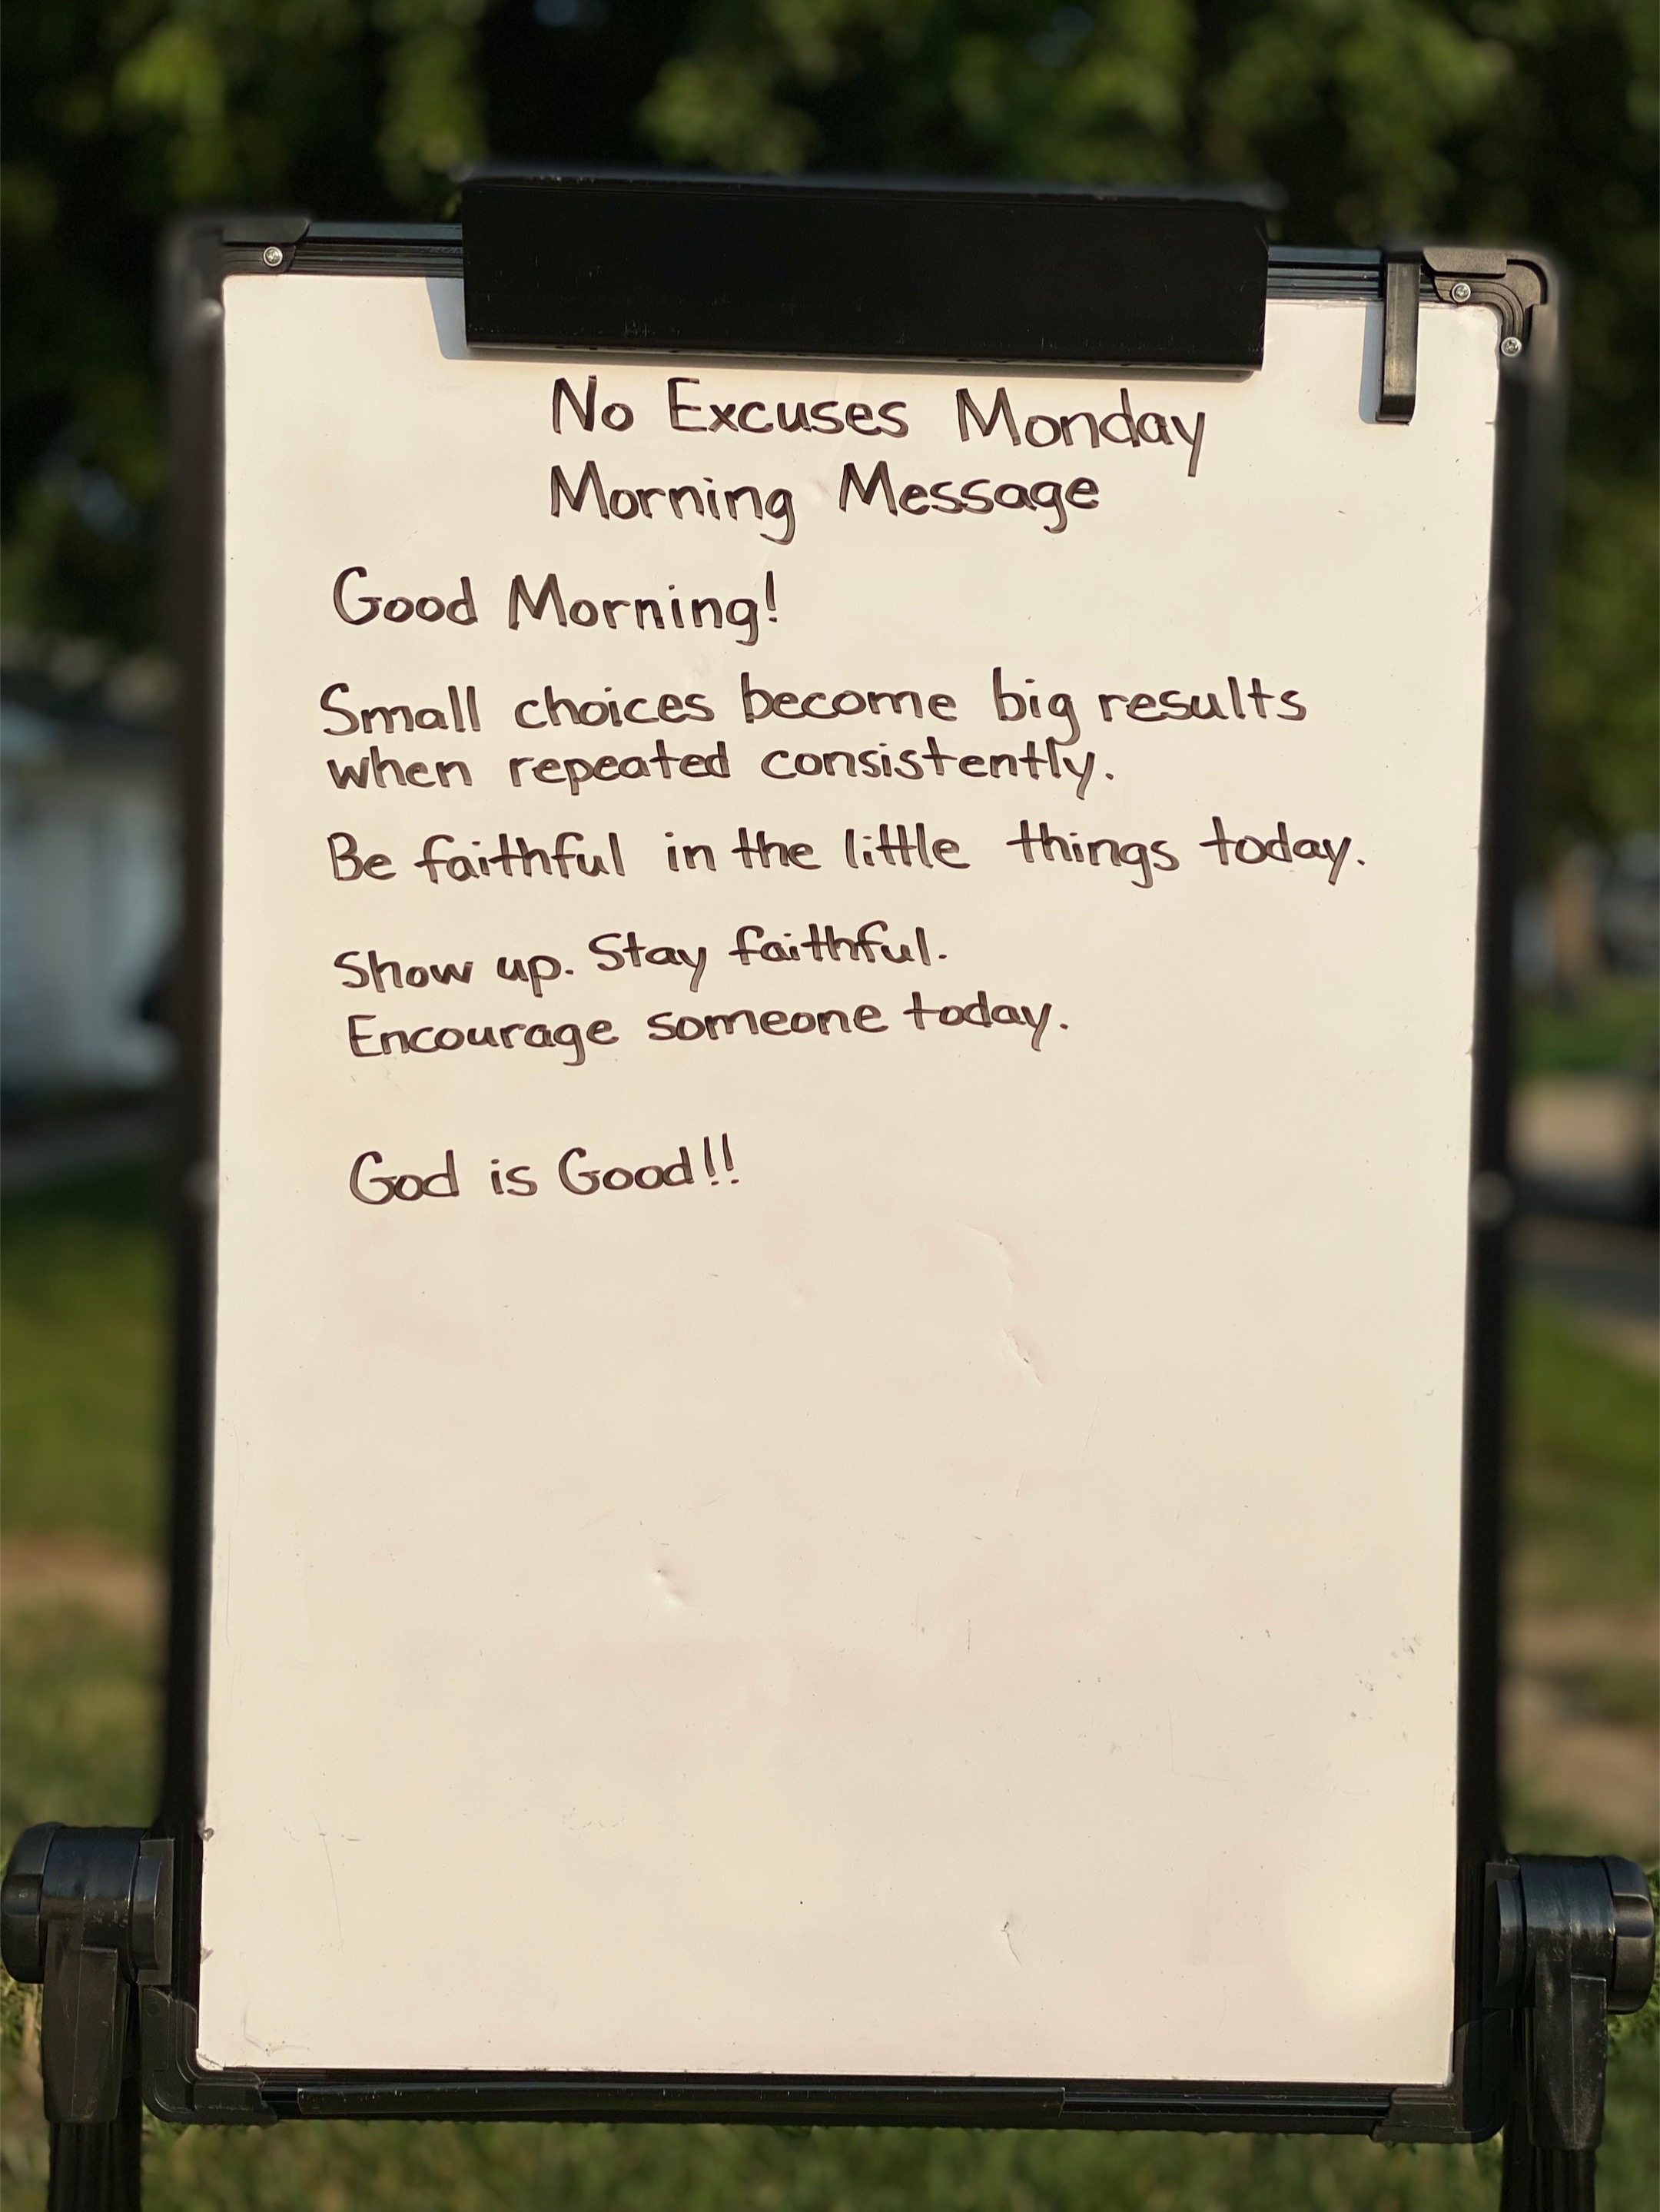 No Excuses Monday
Morning Message
Good Morning!
Small choices become big results
when repeated consistently.
Be faithful in the little things today.
Show up. Stay faithful.
Encourage someone today.
God is Good!!